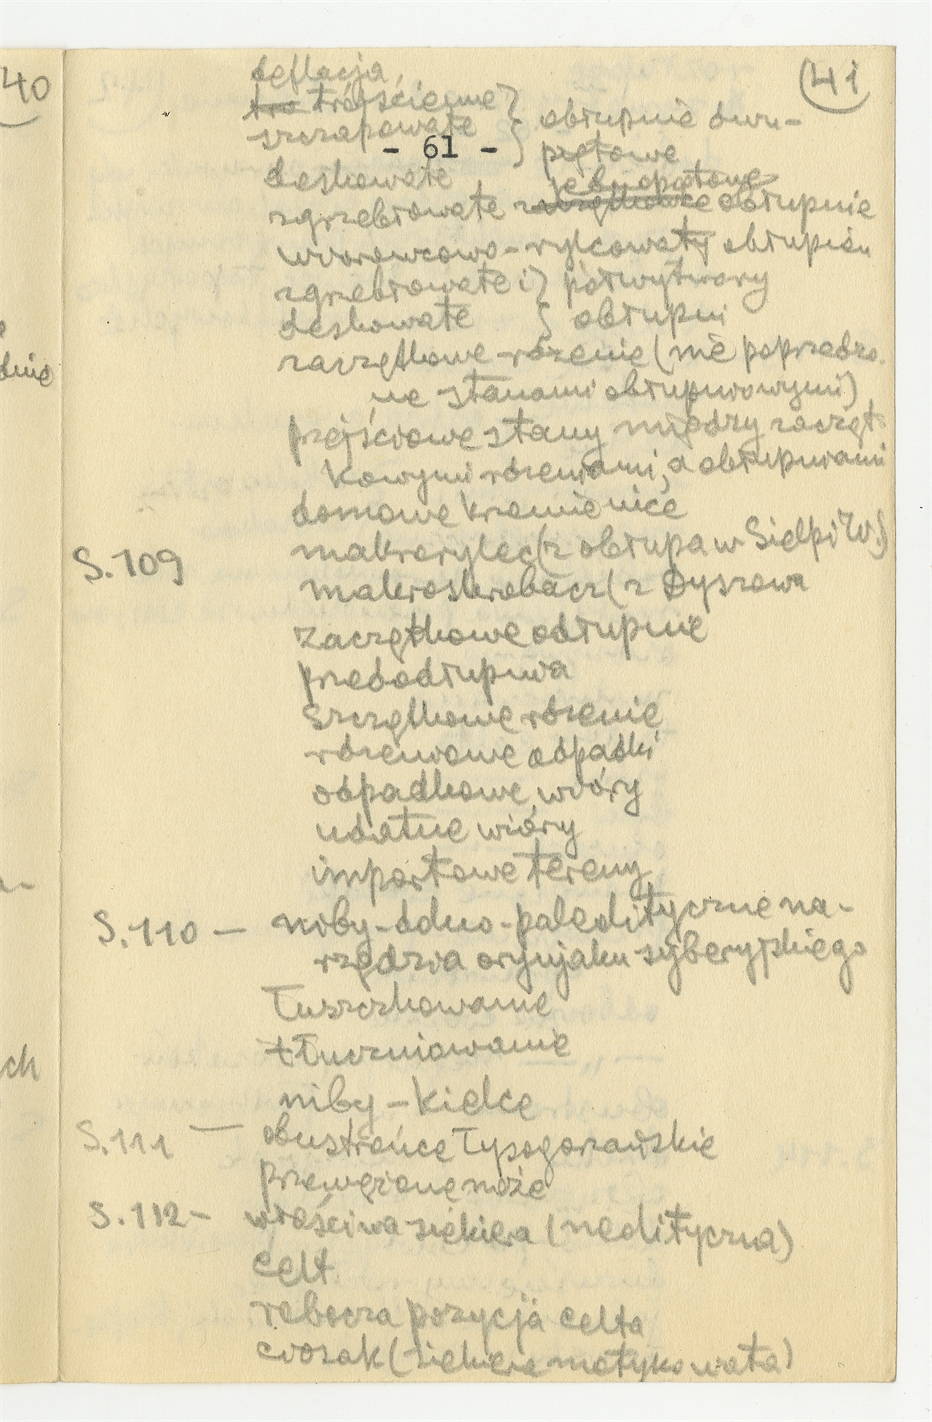 40
41
deflacja
trójścienne
szczapowate } obłupnie dwu-
- 61 -
piętowe
deskowate jednopiętowe
zgrzebłowate obłupnie
wiórowcowo-rylcowaty obłupień
zgrzebłowate i } półwytwory
deskowate } obłupni
zaczątkowe rdzenie (nie poprzedzo-
ne stanami obłupniowymi)
przejściowe stany między zacząt-
kowymi rdzeniami, a obłupniami
domowe krzemienice
S.109 makrorylec (z obłupa w Sielpi W.)
makroskrobacz (z Dyszowa
zaczątkowe odłupnie
przedodłupnia
szczątkowe rdzenie
rdzeniowe odpadki
odpadkowe wióry
udatne wióry
importowe tereny
S.110 — niby-dolno-paleolityczne na-
rzędzia oryniaku syberyjskiego
łuszczkowanie
tłuczniowanie
niby-kielce
S.111 — obustrońce łysogórzańskie
przewężone noże
S.112 - właściwa siekiera (neolityczna)
celt
robocza pozycja celta
ciosak (siekiera motykowata)
dnie
ch